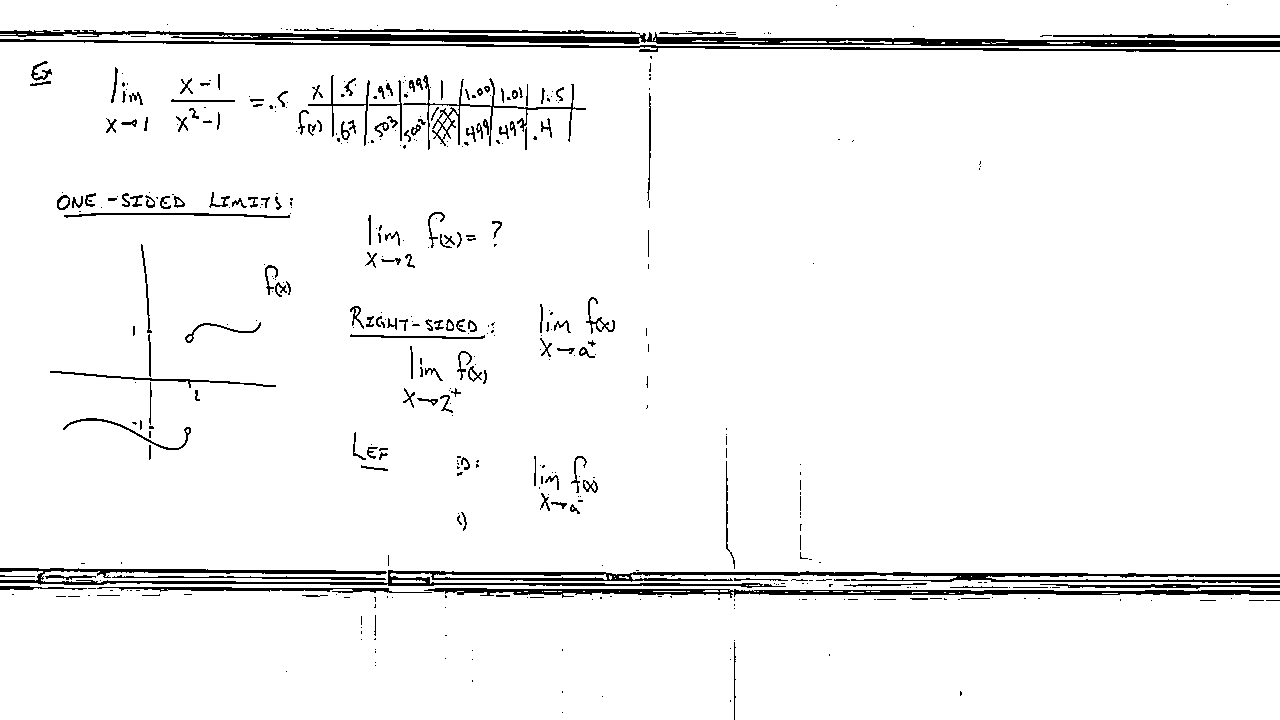 Ex
lim x→1 (x-1)/(x²-1) = .5
x | .5 | .99 | .999 | 1 | 1.001 | 1.01 | 1.5
f(x) | .67 | .503 | .5002 | | .499 | .497 | .4
ONE-SIDED LIMITS:
lim x→2 f(x) = ?
f(x)
1
2
-1
RIGHT-SIDED: lim x→a⁺ f(x)
lim x→2⁺ f(x)
LEF D: lim x→a⁻ f(x)